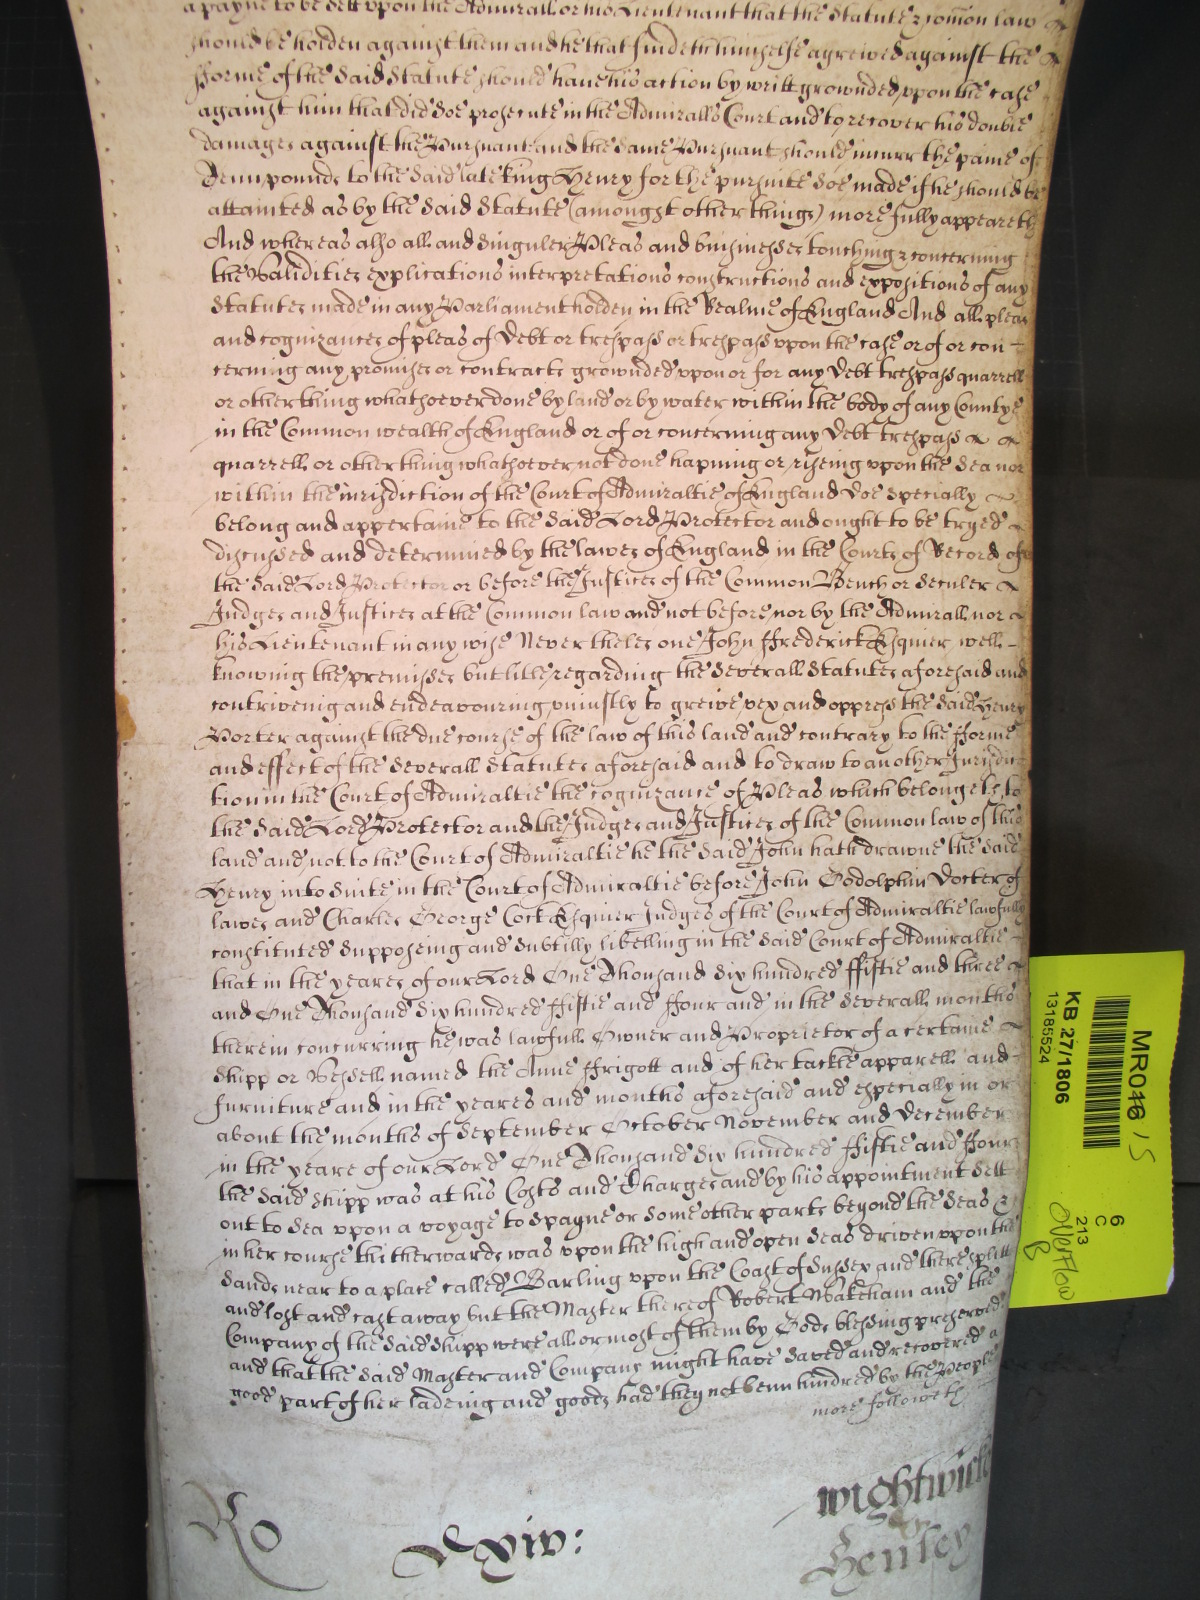 a payne to be sett upon the Admirall or his Lieutenant that the Statute & comon law
should be holden against them and he that findeth himselfe agreived against the
fforme of the said Statute should have his action by writt grownded upon the case
against him that did soe prosecute in the Admiralls Court and to recover his double
damages against the Pursuant and the same Pursuant should incurr the paine of
Tenn pounds to the said late King Henry for the pursuite soe made if he should be
attainted as by the said Statute (amongst other things) more fully appeareth
And whereas also all and singuler Pleas and businesses touching & concerning
the Validities explications interpretations constructions and expositions of any
Statutes made in any Parliament holden in the Realme of England And all pleas
and cognizances of pleas of Debt or trespass or trespass upon the case or of or con-
cerning any promises or contracts grownded upon or for any Debt trespass quarrell
or other thing whatsoever done by land or by water within the body of any Countye
in the Common wealth of England or of or concerning any Debt trespass
quarrell or other thing whatsoever not done hapning or riseing upon the Sea nor
within the jurisdiction of the Court of Admiraltie of England doe specially
belong and appertaine to the said Lord Protector and ought to be tryed
discussed and determined by the lawes of England in the Courts of Record of
the said Lord Protector or before the Justices of the Common Bench or seculer
Judges and Justices at the Common law and not before nor by the Admirall nor
his Lieutenant in any wise Nevertheles one John Frederick Esquier well-
knowing the premisses but litle regarding the severall Statutes aforesaid and
contriveinig and endeavouring uniustly to greive vex and oppress the said Henry
Porter against the due course of the law of this land and contrary to the fforme
and effect of the severall Statutes aforesaid and to draw to another Jurisdic
tion in the Court of Admiraltie the cognizance of Pleas which belongeth to
the said Lord Protector and the Judges and Justices of the Common law of this
land and not to the Court of Admiraltie he the said John hath drawne the said
Henry into Suite in the Court of Admiraltie before John Godolphin Docter of
lawes and Charles George Cock Esquier Judges of the Court of Admiraltie lawfully
constituted Supposeing and subtilly libelling in the said Court of Admiraltie-
that in the yeares of our Lord One Thousand six hundred ffiftie and three
and One Thousand six hundred ffiftie and ffour and in the severall months
therein concurring he was lawfull Owner and Proprietor of a certaine
Shipp or Vessell named the Anne ffrigott and of her tackle apparell and-
furniture and in the yeares and months aforesaid and especially in or
about the months of September October November and December
in the yeare of our Lord One Thousand six hundred ffiftie and ffour
the said shipp was at his Costs and Charges and by his appointment sett
out to Sea upon a voyage to Spayne or some other parts beyond the Seas &
in her course thitherwards was upon the high and open Seas driven upon the
Sands near to a place called Barling upon the Coast of Sussex and there splitt
and lost and cast away but the Master thereof Robert Wakeham and the
Company of the said Shipp were all or most of them by Gods blessing preserved
and that the said Master and Company might have saved and recovered a
good part of her ladeing and goods had they not benn hindred by the People
more followeth
Ro
Wightwick
Henley
MR046 / 5
KB 27/1806
13185524
6
C
213
Overflow
8